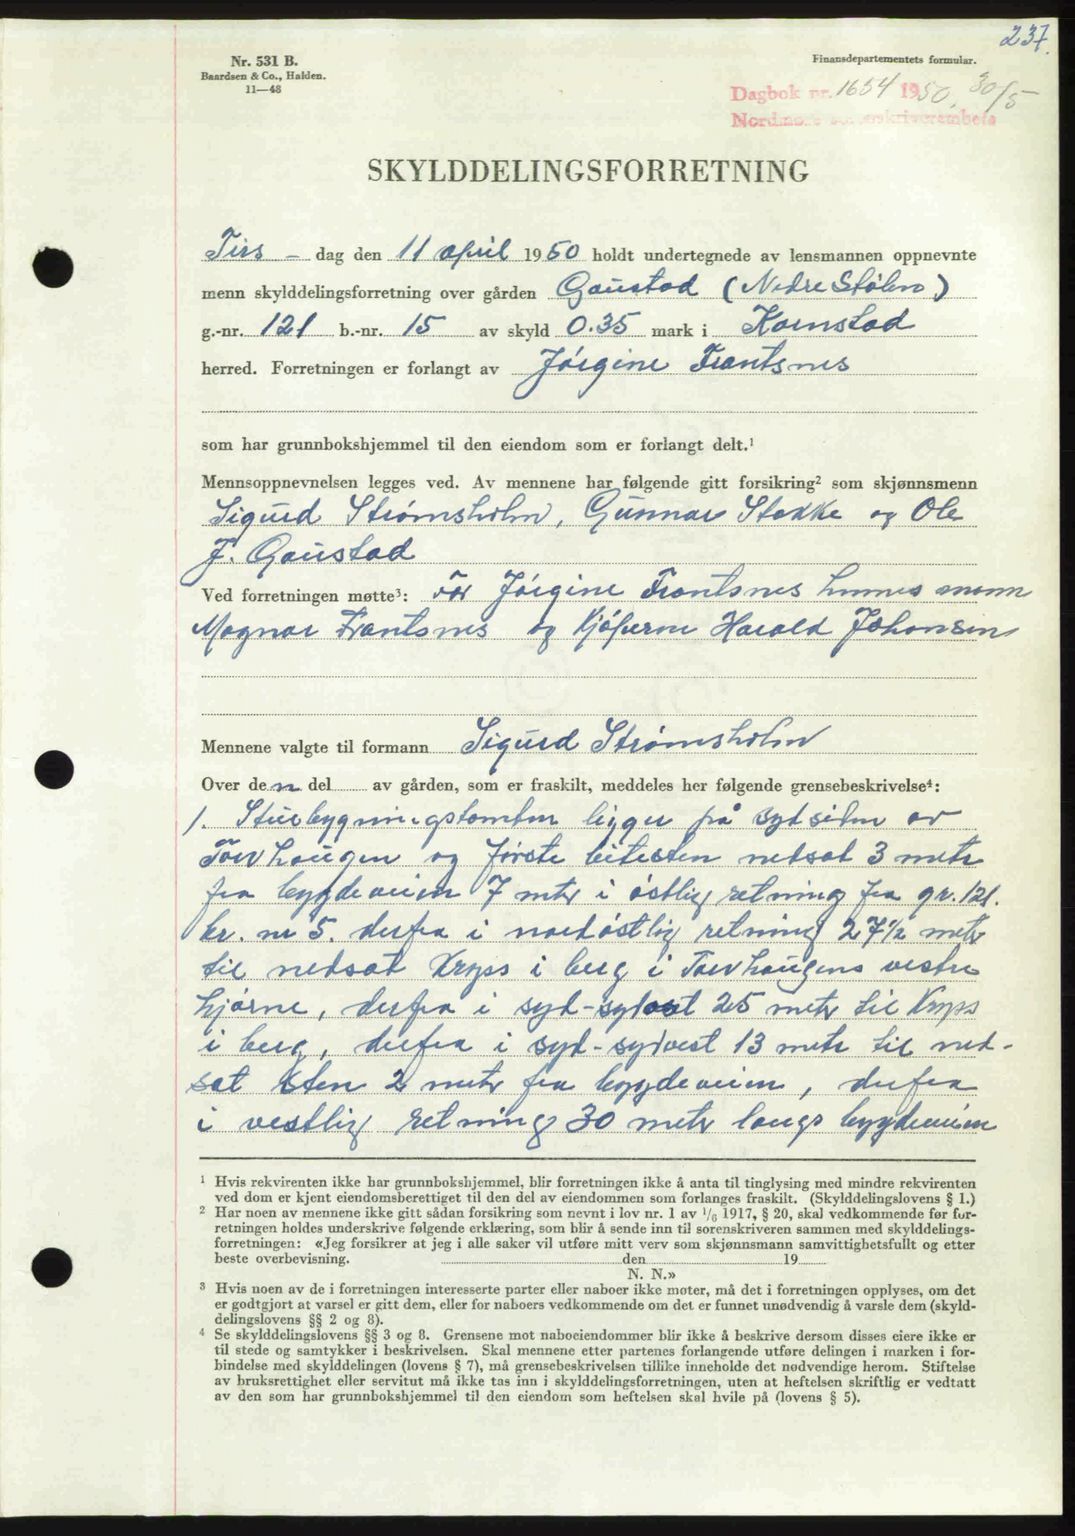 237.
Nr. 531 B.
Baardsen & Co., Halden.
11—48
Finansdepartementets formular.
Dagbok nr. 1654 1950, 30/5
Nordmøre sorenskriverembete
SKYLDDELINGSFORRETNING
Tirs - dag den 11 april 1950 holdt undertegnede av lensmannen oppnevnte
menn skylddelingsforretning over gården Gaustad (Nedre Stølen)
g.-nr. 121 b.-nr. 15 av skyld 0.35 mark i Kornstad
herred. Forretningen er forlangt av Jørgine Frantsnes
som har grunnbokshjemmel til den eiendom som er forlangt delt.¹
Mennsoppnevnelsen legges ved. Av mennene har følgende gitt forsikring² som skjønnsmenn
Sigurd Strømsholm, Gunnar Stokke og Ole
J. Gaustad
Ved forretningen møtte³: For Jørgine Frantsnes hennes mann
Magnar Frantsnes og kjøperen Harald Johansen
Mennene valgte til formann Sigurd Strømsholm
Over den del av gården, som er fraskilt, meddeles her følgende grensebeskrivelse⁴:
1. Stuebygningstomten ligger på sydsiden av
Torvhaugen og første bitesten nedsat 3 meter
fra bygdeveien 7 meter i østlig retning fra gr. 121.
br. nr 5. derfra i nordøstlig retning 27½ meter
til nedsat kryss i berg i Torvhaugens vestre
hjørne, derfra i syd-sydost 25 meter til kryss
i berg, derfra i syd-sydvest 13 meter til ned-
sat sten 2 meter fra bygdeveien, derfra
i vestlig retning 30 meter langs bygdeveien
¹ Hvis rekvirenten ikke har grunnbokshjemmel, blir forretningen ikke å anta til tinglysing med mindre rekvirenten
ved dom er kjent eiendomsberettiget til den del av eiendommen som forlanges fraskilt. (Skylddelingslovens § 1.)
² Har noen av mennene ikke gitt sådan forsikring som nevnt i lov nr. 1 av 1/6 1917, § 20, skal vedkommende før for-
retningen holdes underskrive følgende erklæring, som blir å sende inn til sorenskriveren sammen med skylddelings-
forretningen: «Jeg forsikrer at jeg i alle saker vil utføre mitt verv som skjønnsmann samvittighetsfullt og etter
beste overbevisning. den 19
N. N.»
³ Hvis noen av de i forretningen interesserte parter eller naboer ikke møter, må det i forretningen opplyses, om det
er godtgjort at varsel er gitt dem, eller for naboers vedkommende om det er funnet unødvendig å varsle dem (skyld-
delingslovens §§ 2 og 8).
⁴ Se skylddelingslovens §§ 3 og 8. Grensene mot naboeiendommer blir ikke å beskrive dersom disses eiere ikke er
til stede og samtykker i beskrivelsen. Skal mennene etter partenes forlangende utføre delingen i marken i for-
bindelse med skylddelingen (lovens § 7), må grensebeskrivelsen tillike inneholde det nødvendige herom. Stiftelse
av bruksrettighet eller servitut må ikke tas inn i skylddelingsforretningen, uten at heftelsen skriftlig er vedtatt
av den som har grunnbokshjemmel til den eiendom som heftelsen skal hvile på (lovens § 5).